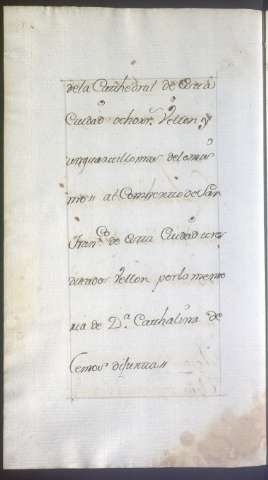 dela Cathedral de esta
Ciudad ochorr.s Vellon y
un quartillo mas del mis
mo" al Combento de San
Fran.co de esta Ciudad
ducados Vellon por la memo
ria de D.a Cathalina de
Lemos difunta"